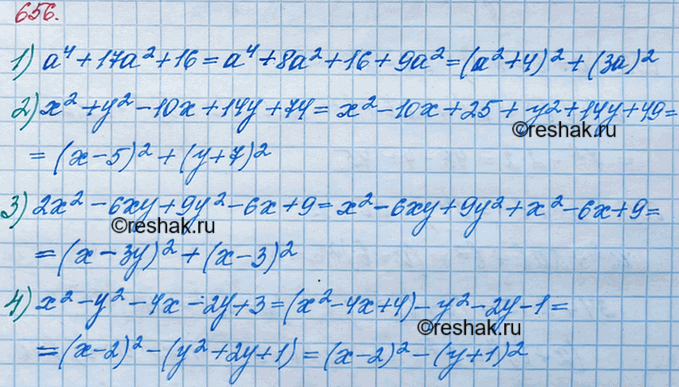 656.
1) a⁴ + 17a² + 16 = a⁴ + 8a² + 16 + 9a² = (a² + 4)² + (3a)²
2) x² + y² - 10x + 14y + 74 = x² - 10x + 25 + y² + 14y + 49 =
©reshak.ru
= (x - 5)² + (y + 7)²
3) 2x² - 6xy + 9y² - 6x + 9 = x² - 6xy + 9y² + x² - 6x + 9 =
©reshak.ru
= (x - 3y)² + (x - 3)²
4) x² - y² - 4x - 2y + 3 = (x² - 4x + 4) - y² - 2y - 1 =
©reshak.ru
= (x - 2)² - (y² + 2y + 1) = (x - 2)² - (y + 1)²